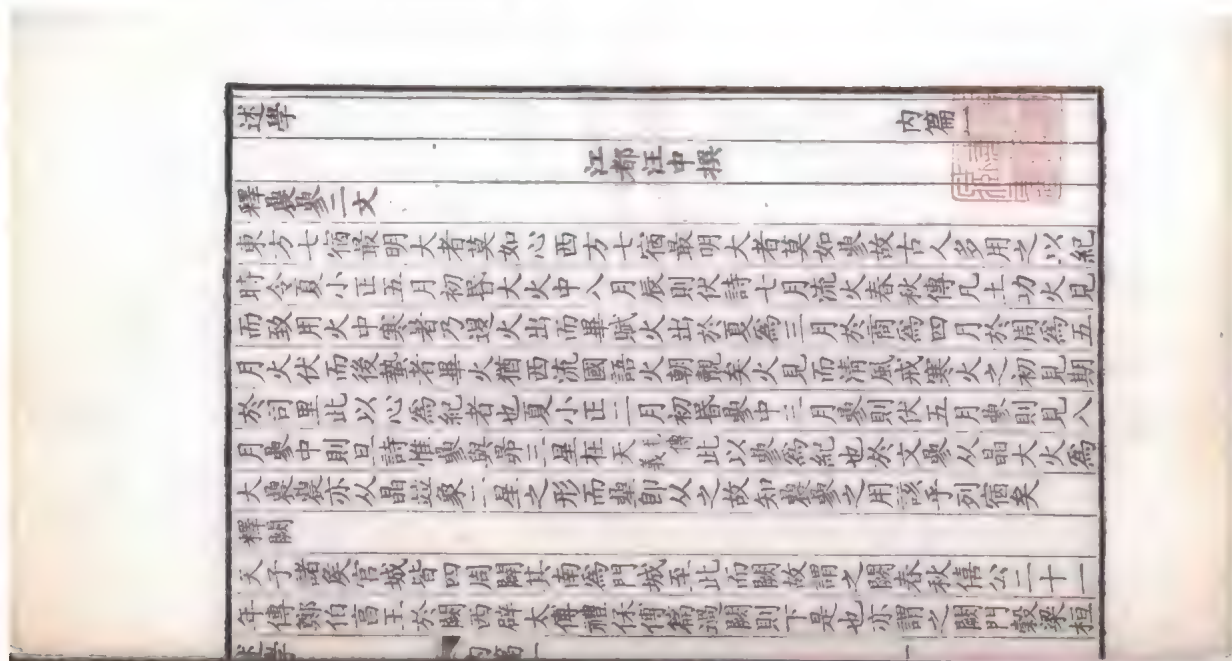 述學 內篇一
江都汪中撰
釋曟曑二文
東方七宿最明大者莫如心西方七宿最明大者莫如曑故古人多用之以紀
時令夏小正五月初昏大火中八月辰則伏詩七月流火春秋傳凡土功火見
而致用火中寒暑乃退火出而畢賦火出於夏爲三月於商爲四月於周爲五
月火伏而後蟄者畢火猶西流國語火朝覿矣火見而清風戒寒火之初見期
於司里此以心爲紀者也夏小正二月初昏曑中三月曑則伏五月曑則見八
月曑中則旦詩惟曑與昴三星在天毛傳義此以曑爲紀也於文曑从晶大火爲
大曟曟亦从晶並象三星之形而曐卽从之故知曟曑之用該乎列宿矣
釋闕
天子諸侯宮城皆四周闕其南爲門城至此而闕故謂之闕春秋僖公二十一
年傳鄭伯亯王於闕西辟太傅禮保傅篇過闕則下是也亦謂之闕門穀梁桓
述學 內篇一 一